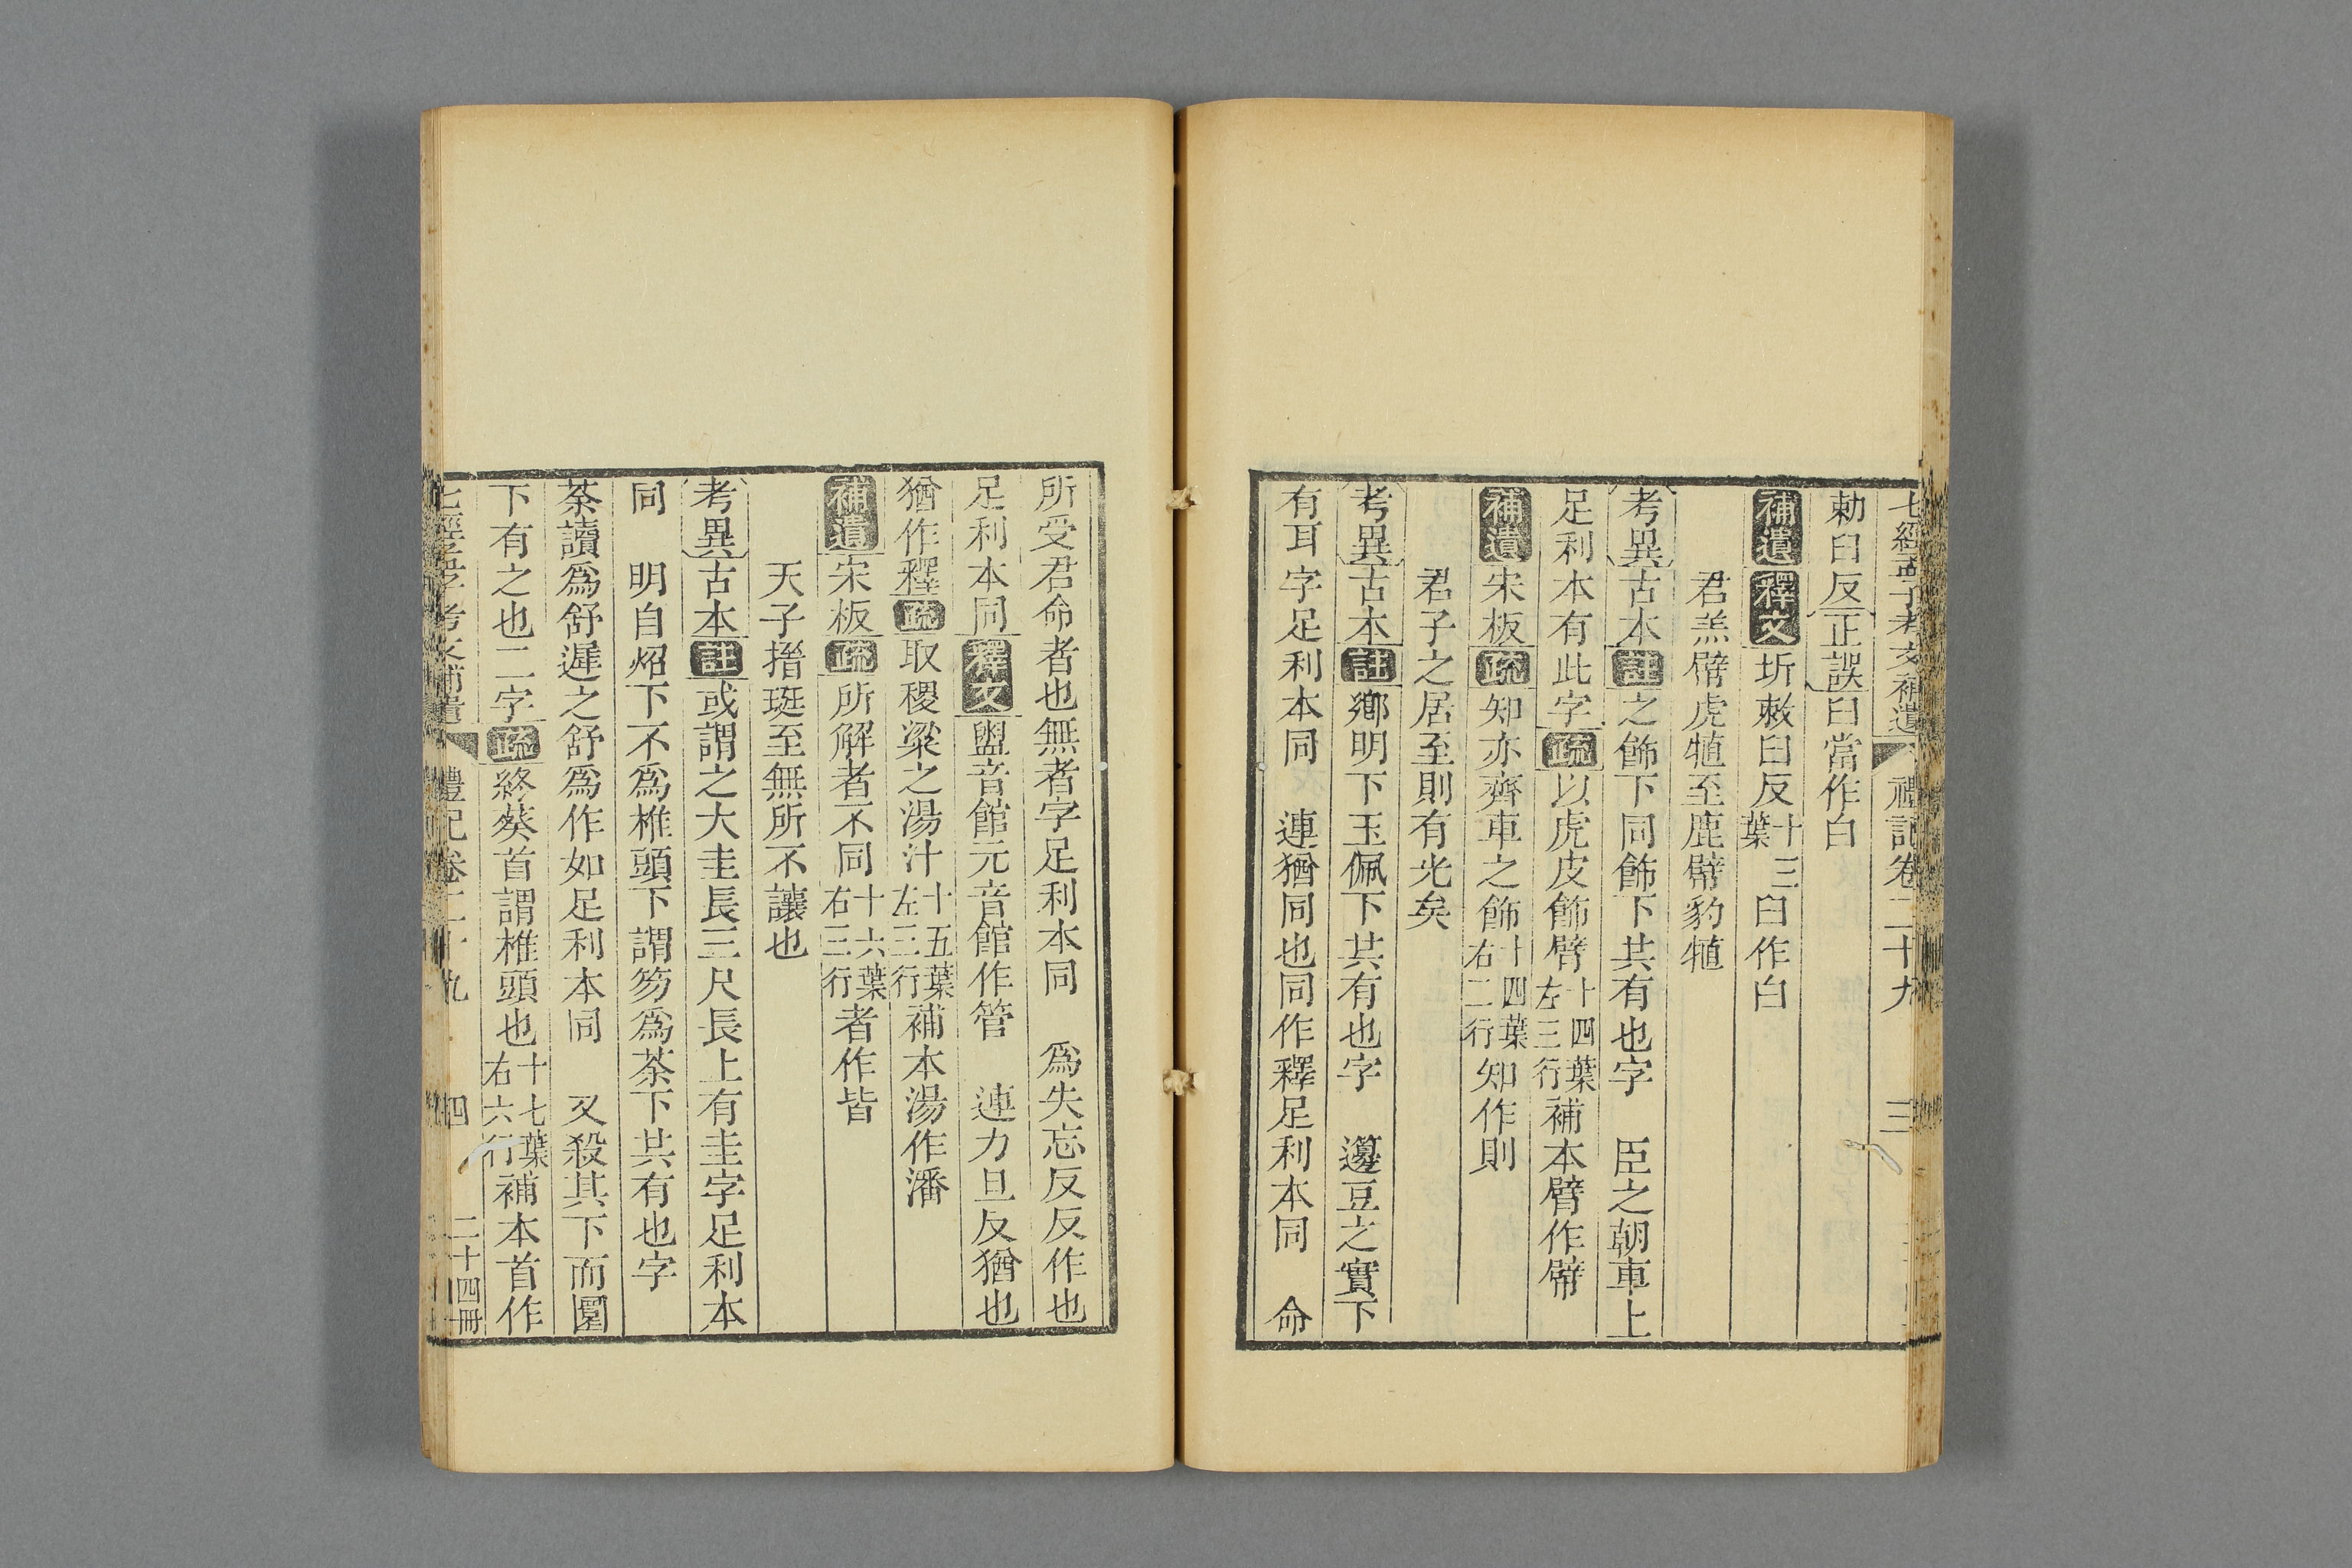 七經孟子考文補遺 禮記卷二十九 三
勅臼反正誤臼當作白
補遺釋文圻敕臼反十三葉臼作白
君羔幦虎犆至鹿幦豹犆
考異古本註之飾下同飾下共有也字 臣之朝車上
足利本有此字疏以虎皮飾臂十四葉左三行補本臂作幦
補遺宋板疏知亦齊車之飾十四葉右二行知作則
君子之居至則有光矣
考異古本註鄉明下玉佩下共有也字 籩豆之實下
有耳字足利本同 連猶同也同作釋足利本同 命
所受君命者也無者字足利本同 爲失忘反反作也
足利本同釋文盥音館元音館作管 連力旦反猶也
猶作釋疏取稷粱之湯汁十五葉左三行補本湯作潘
補遺宋板疏所解者不同十六葉右三行者作皆
天子搢珽至無所不讓也
考異古本註或謂之大圭長三尺長上有圭字足利本
同 明自炤下不爲椎頭下謂笏爲荼下共有也字
荼讀爲舒遲之舒爲作如足利本同 又殺其下而圜
下有之也二字疏終葵首謂椎頭也十七葉右六行補本首作
七經孟子考文補遺 禮記卷二十九 四 二十四冊